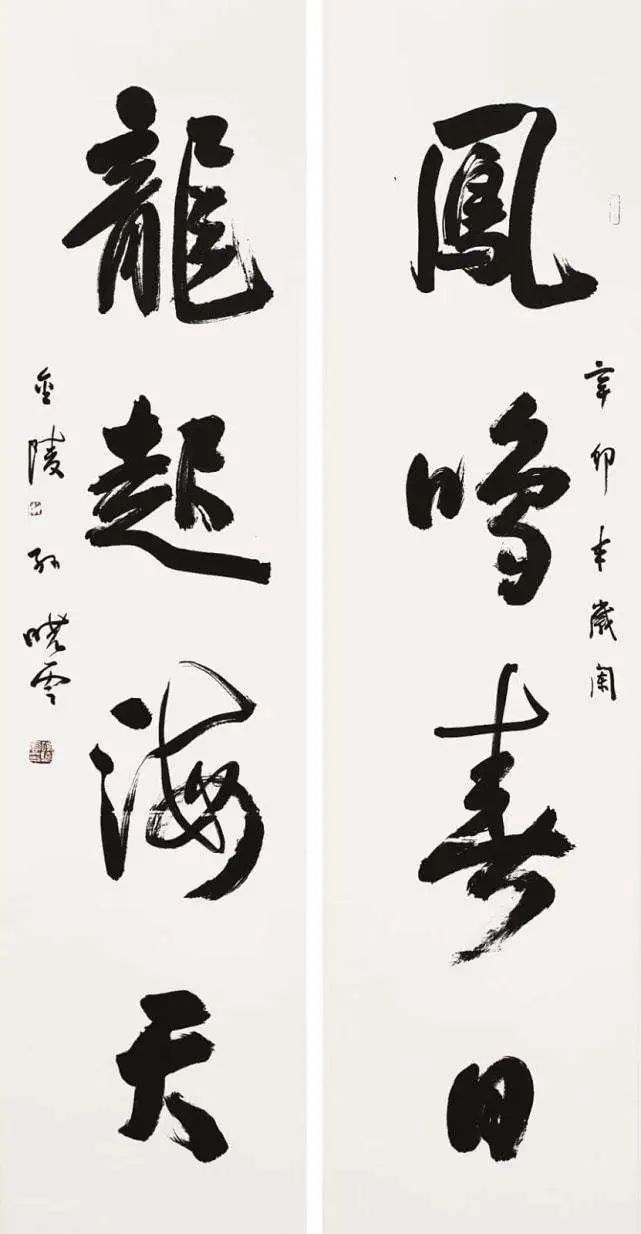 鳳鳴春日
辛卯年歲闌
龍起海天
金陵孫曉雲